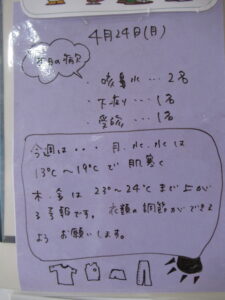 4月24日(月)
今日の病欠
・咳鼻水…2名
・下痢…1名
・受診…1名
今週は・・・月.火.水は
13℃〜19℃で肌寒く
木.金は23℃〜24℃まで上が
る予報です。衣類の調節ができる
ようお願いします。